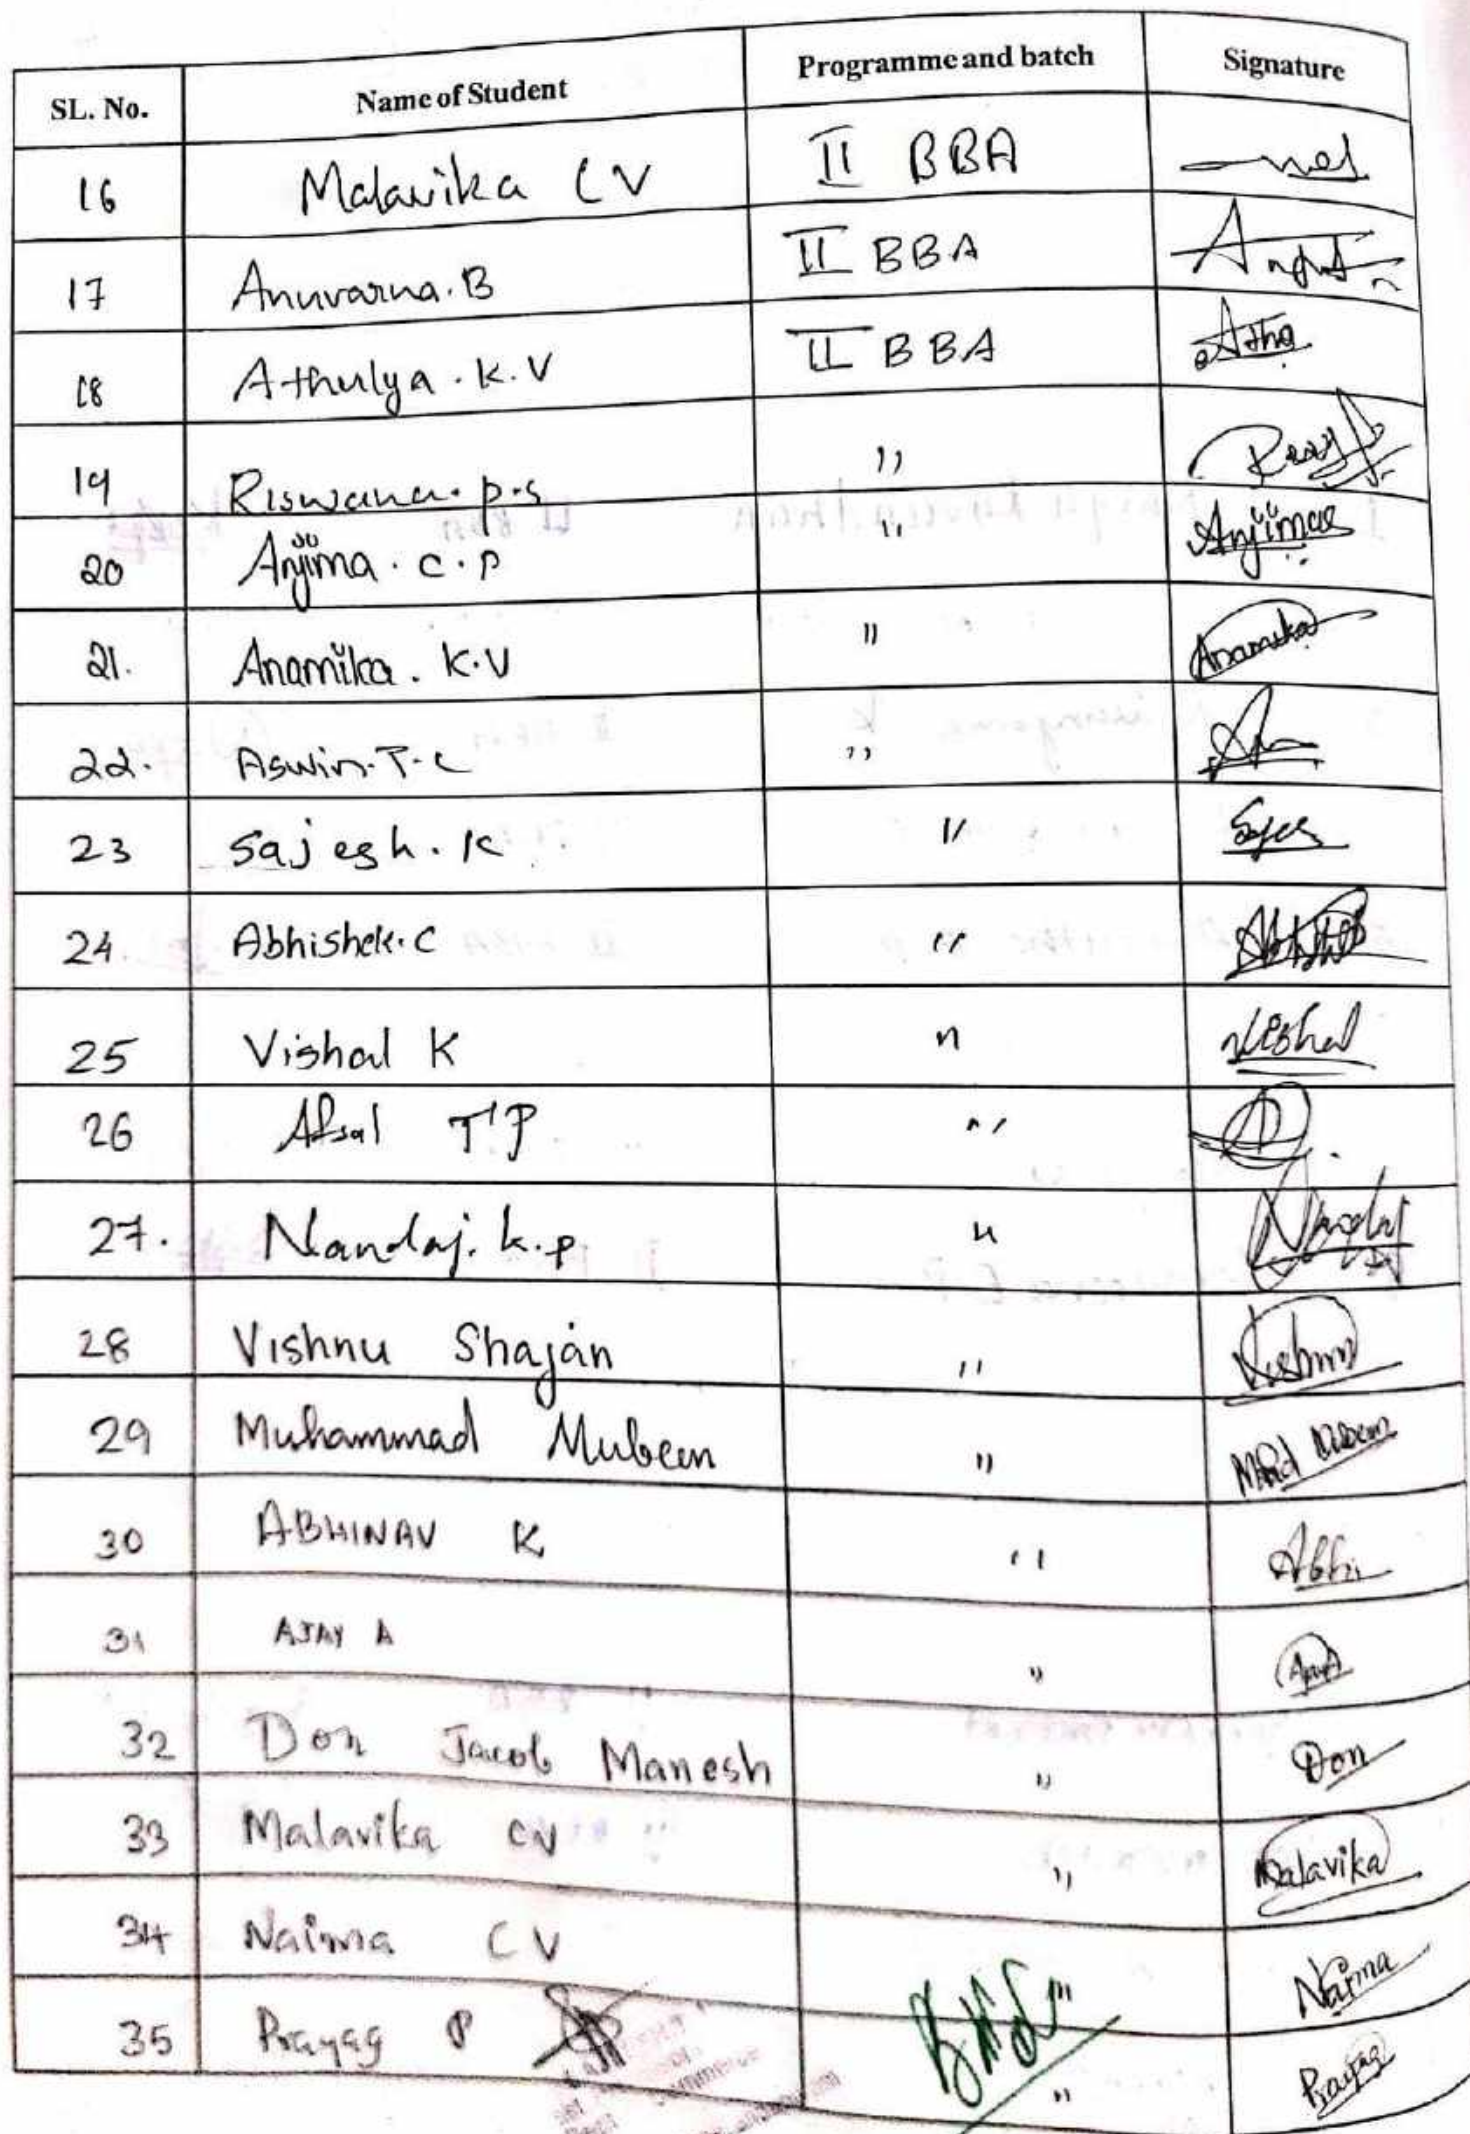 SL. No. Name of Student Programme and batch Signature
16 Malavika C V II BBA
17 Anuvarna. B II BBA
18 Athulya . K. V II BBA Atho
19 Riswana. p. s ,,
20 Anjima . C . P " Anjimas
21. Anamika . K. V " Anamika
22. Aswin. T. C ,,
23 Sajesh. K "
24. Abhishek. C "
25 Vishal K " Vishal
26 Afsal T P "
27. Nandaj. k. p " Nandaj
28 Vishnu Shajan " Vishnu
29 Muhammad Mubeen " Muhd Mubeen
30 ABHINAV K " Abhi
31 AJAY A "
32 Don Jacob Manesh " Don
33 Malavika CV " Malavika
34 Naima C V " Naima
35 Prayag P " Prayag